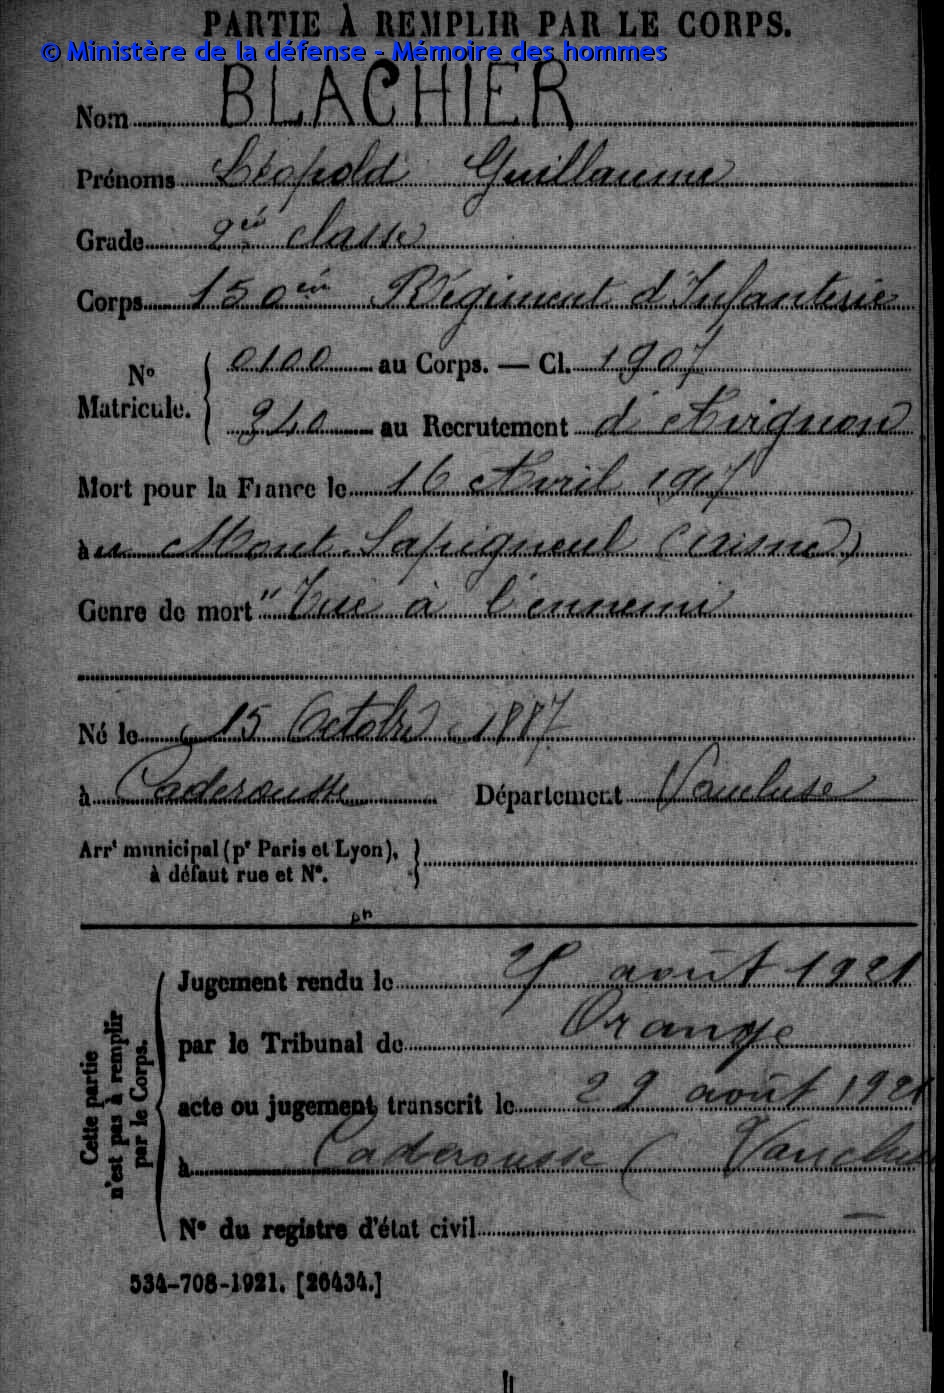 PARTIE À REMPLIR PAR LE CORPS.
© Ministère de la défense - Mémoire des hommes
Nom BLACHIER
Prénoms Léopold Guillaume
Grade 2è classe
Corps 150èm Régiment d'Infanterie
No Matricule. { 0100 au Corps. — Cl. 1907
340 au Recrutement d'Avignon
Mort pour la France le 16 Avril 1917
àu Mont Sapigneul (Aisne)
Genre de mort "Tué à l'ennemi
Né le 15 Octobre 1887
à Caderousse Département Vaucluse
Arrt municipal (pr Paris et Lyon), à défaut rue et No. }
Cette partie n'est pas à remplir par le Corps.
Jugement rendu le août 1921
par le Tribunal de Orange
acte ou jugement transcrit le 29 août 1921
à Caderousse (Vaucluse
No du registre d'état civil —
534-708-1921. [26434.]